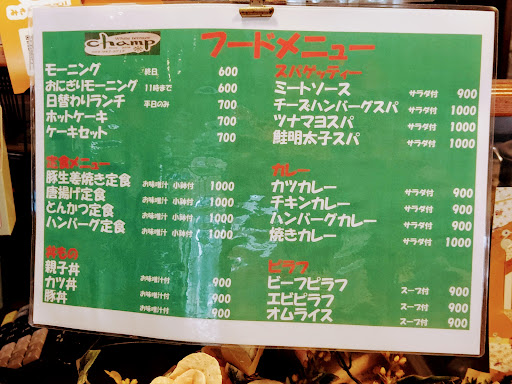 champ
フードメニュー
モーニング 終日 600
おにぎりモーニング 11時まで 600
日替わりランチ 平日のみ 700
ホットケーキ 700
ケーキセット 700
定食メニュー
豚生姜焼き定食 お味噌汁 小鉢付 1000
唐揚げ定食 お味噌汁 小鉢付 1000
とんかつ定食 お味噌汁 小鉢付 1000
ハンバーグ定食 お味噌汁 小鉢付 1000
丼もの
親子丼 お味噌汁付 900
カツ丼 お味噌汁付 900
豚丼 お味噌汁付 900
スパゲッティー
ミートソース サラダ付 900
チーズハンバーグスパ サラダ付 1000
ツナマヨスパ サラダ付 1000
鮭明太子スパ サラダ付 1000
カレー
カツカレー サラダ付 900
チキンカレー サラダ付 900
ハンバーグカレー サラダ付 900
焼きカレー サラダ付 1000
ピラフ
ビーフピラフ スープ付 900
エビピラフ スープ付 900
オムライス スープ付 900